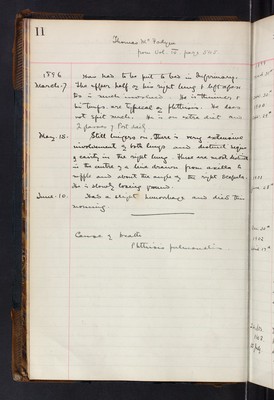 11
Thomas Mc Fadyen
from Vol. IV page 505.
1896
March. 7.
Has had to be put to bed in Infirmary.
The upper half of his right lung & left apex
too is much involved. He is thinner, &
his temps. are typical of phthisis. He does
not spit much. He is on extra diet and
2 glasses of Port daily.
May. 15.
Still lingers on. There is very extensive
involvement of both lungs and distinct signs
of cavity in the right lung. These are most distinct
in the centre of a line drawn from axilla to
nipple and about the angle of the right Scapula.
He is slowly losing ground.
June. 10.
Had a slight hemorrhage and died this
morning.
Cause of Death
Phthisis pulmonalis